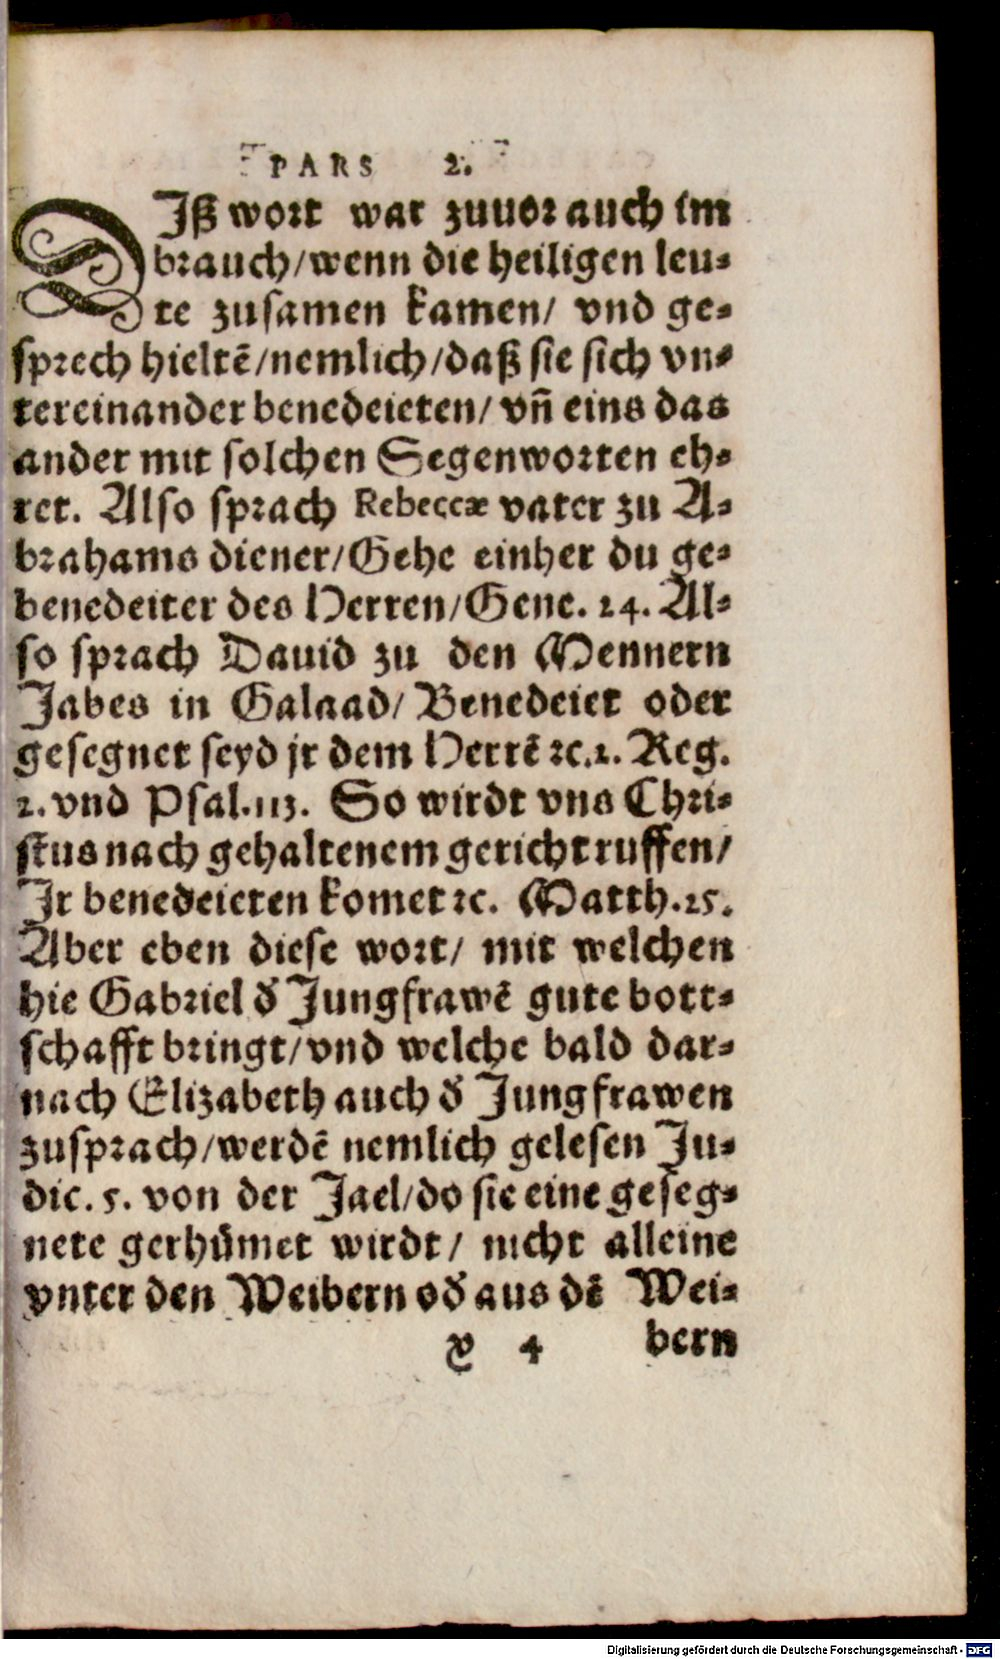 PARS 2.
DIß wort war zuuor auch im
brauch/wenn die heiligen leu⸗
te zusamen kamen/ vnd ge⸗
sprech hieltẽ/nemlich/daß sie sich vn⸗
tereinander benedeieten/ vñ eins das
ander mit solchen Segenworten eh⸗
ret. Also sprach Rebeccæ vater zu A⸗
brahams diener/Gehe einher du ge⸗
benedeiter des Herren/Gene. 24. Al⸗
so sprach Dauid zu den Mennern
Jabes in Galaad/ Benedeiet oder
gesegnet seyd jr dem Herrẽ ꝛc.1. Reg.
2. vnd Psal.113. So wirdt vns Chri⸗
stus nach gehaltenem gericht ruffen/
Jr benedeieten komet ꝛc. Matth.25.
Aber eben diese wort/ mit welchen
hie Gabriel d̕ Jungfrawẽ gute bott⸗
schafft bringt/vnd welche bald dar⸗
nach Elizabeth auch d̕ Jungfrawen
zusprach/werdẽ nemlich gelesen Ju⸗
dic. 5. von der Jael/do sie eine geseg⸗
nete gerhümet wirdt/ nicht alleine
vnter den Weibern od̕ aus dẽ Wei⸗
x 4 bern
Digitalisierung gefördert durch die Deutsche Forschungsgemeinschaft - DFG